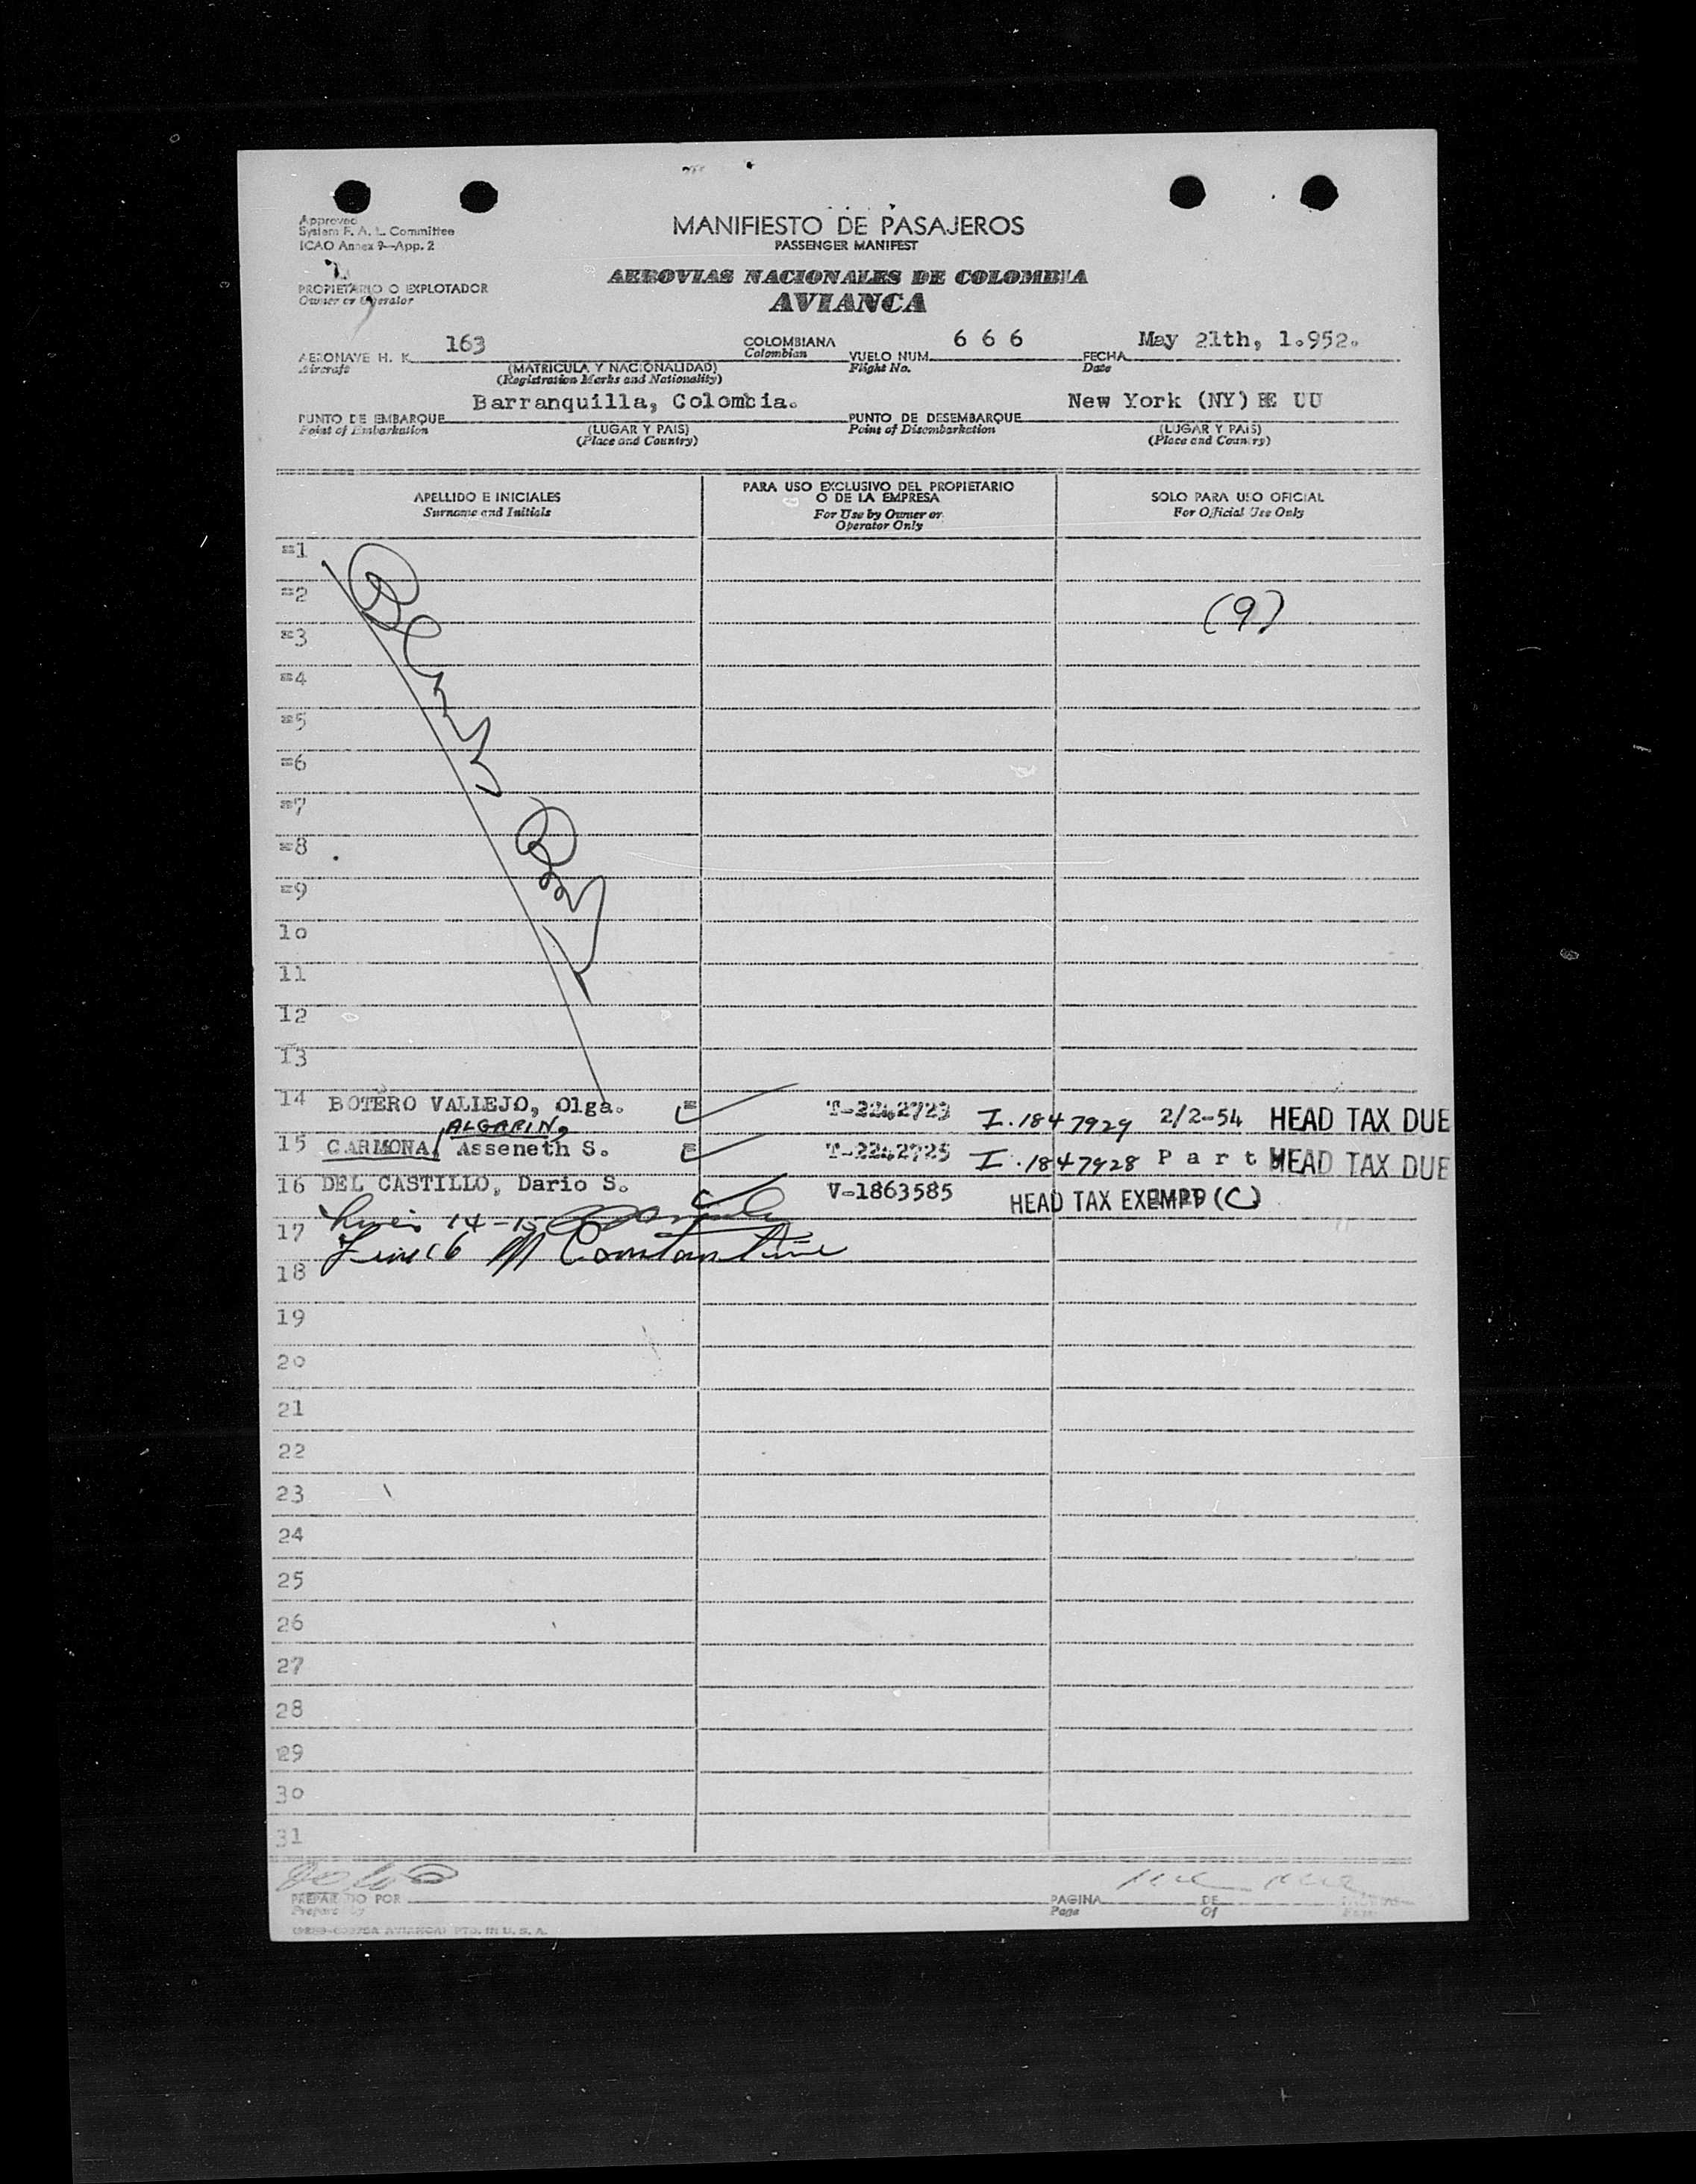 MANIFIESTO DE PASAJEROS
PASSENGER MANIFEST
Approved
System F. A. L. Committee
ICAO Annex 9—App. 2
AEROVIAS NACIONALES DE COLOMBIA
AVIANCA
PROPIETARIO O EXPLOTADOR
Owner or Operator
AERONAVE H. K. 163 COLOMBIANA VUELO NUM. 6 6 6 FECHA May 21th, 1.952.
Aircraft (MATRICULA Y NACIONALIDAD) Colombian Flight No. Date
(Registration Marks and Nationality)
PUNTO DE EMBARQUE Barranquilla, Colombia. PUNTO DE DESEMBARQUE New York (NY) EE UU
Point of Embarkation (LUGAR Y PAIS) Point of Disembarkation (LUGAR Y PAIS)
(Place and Country) (Place and Country)
APELLIDO E INICIALES PARA USO EXCLUSIVO DEL PROPIETARIO O DE LA EMPRESA SOLO PARA USO OFICIAL
Surname and Initials For Use by Owner or Operator Only For Official Use Only
=1
=2 (9)
=3
=4
=5
=6
=7
=8
=9
10
11
12
13
14 BOTERO VALLEJO, Olga. T-2242723 I.1847929 2/2-54 HEAD TAX DUE
ALGARIN,
15 CARMONA/ Asseneth S. T-2242725 I.1847928 Part HEAD TAX DUE
16 DEL CASTILLO, Dario S. V-1863585 HEAD TAX EXEMPT (C)
Lines 14-15
17
Line 16 M Constantine
18
19
20
21
22
23
24
25
26
27
28
29
30
31
PREPARADO POR PAGINA DE
Prepared by Page Of
AVIANCA) PTD. IN U. S. A.